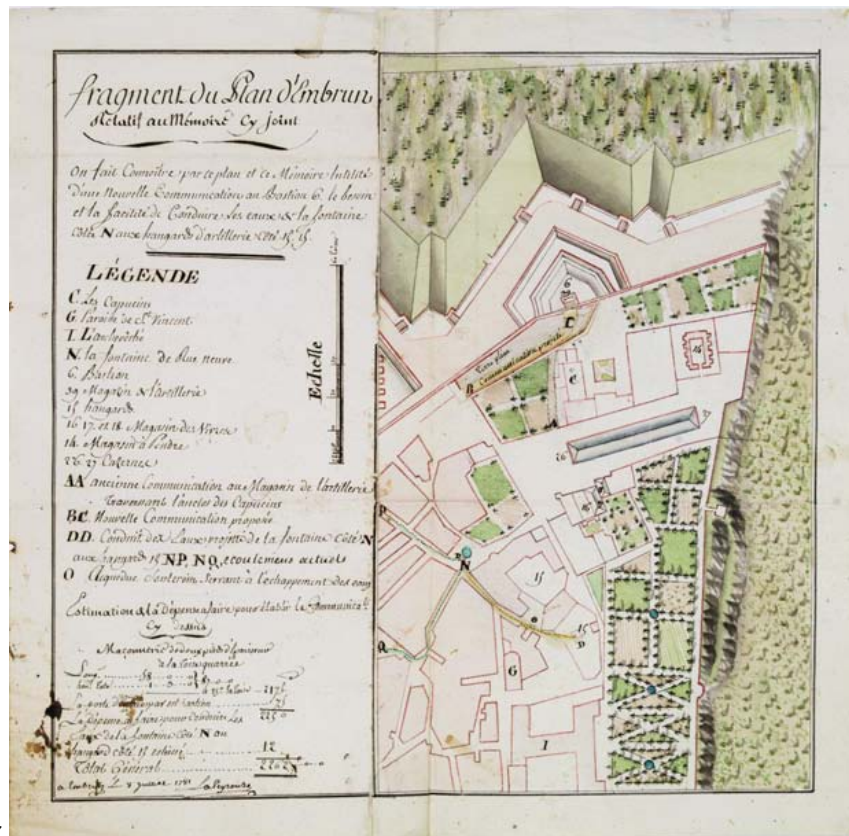 fragment du Plan d'Embrun
Relatif au Mémoire Cy joint
On fait Connoître par ce plan et ce Mémoire l'utilité
d'une Nouvelle Communication au Bastion 6. le besoin
et la facilité de Conduire les eaux de la fontaine
côté N aux hangards d'artillerie côté 15. 15.
LÉGENDE
C. Les Capucins
G. Paroisse de St. Vincent
I. L'archevêché
N. la fontaine de Rue neuve
6. Bastion
39 Magasin de l'artillerie
15 hangards
16. 17. et 18. Magasin des Vivres
14. Magasin à Poudre
26. 27 Casernes
AA ancienne Communication au Magasin de l'artillerie
Traversant l'enclos des Capucins
BC. Nouvelle Communication proposée
DD. Conduit des Eaux projetté de la fontaine côté N
aux hangards 15 NP, NQ, ecoulemens actuels
O Aqueduc Souterrain Servant à l'échappement des eaux
Estimation de la Dépense a faire pour établir la Communication
Cy dessus
Maçonnerie de deux pieds d'épaisseur
à la toise quarrée
2175
75
La Dépense a faire pour Conduire Les
2250
Eaux de la fontaine côté N au
hangard côté 15 estimé
12
Total Général
2262
a Embrun Le 8 1781 Lapeyrouse
Echelle
6
C
Terre plein
Communication projettée
B
C
A
14
26
27
P
N
15
O
15
D
Q
G
I